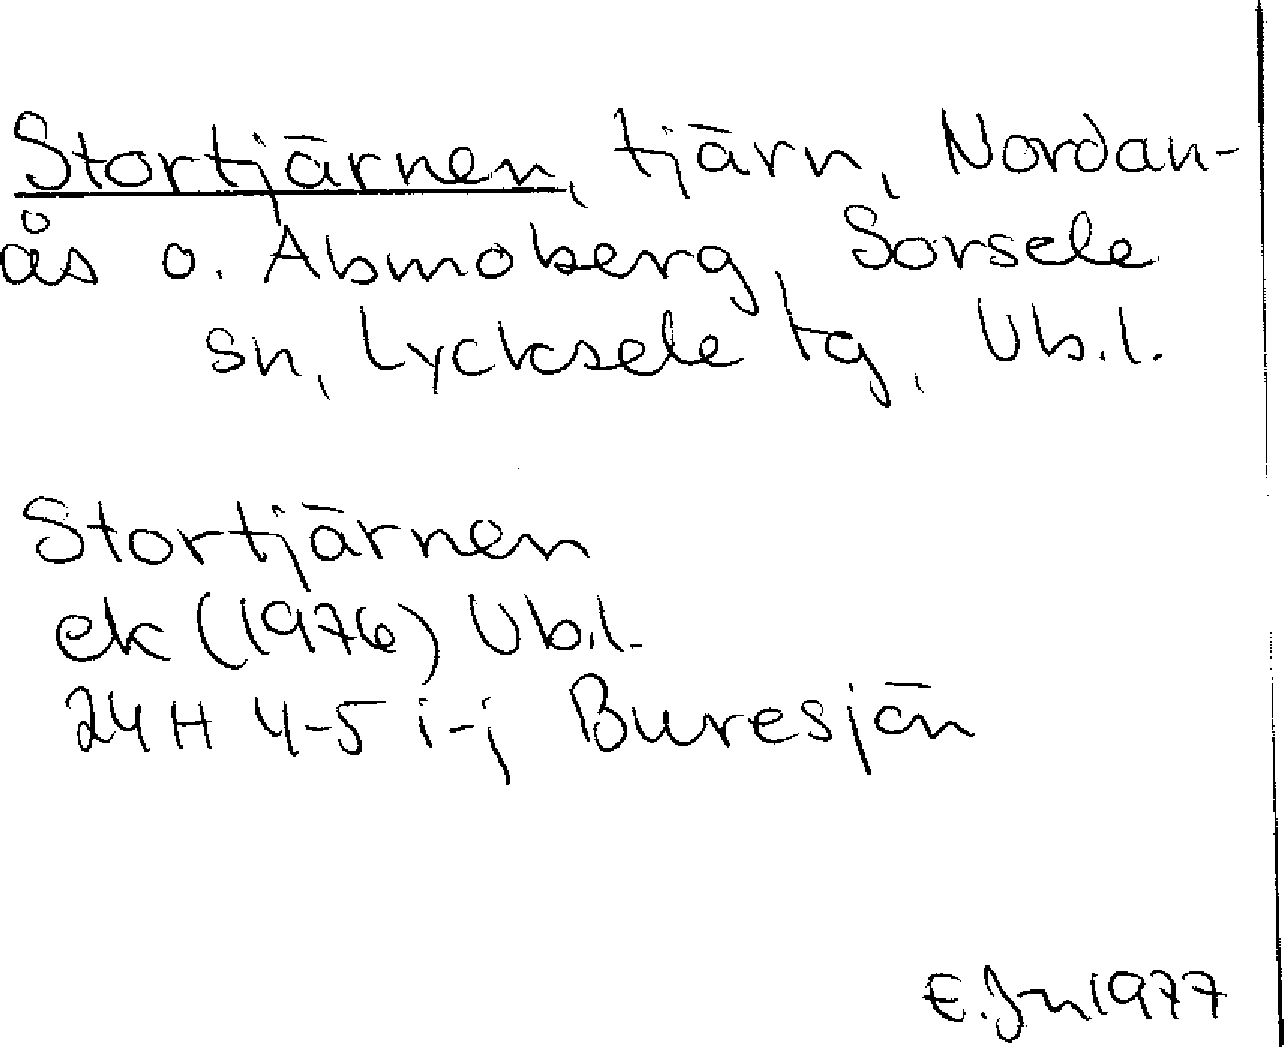 Stortjärnen, tjärn, Nordan-
ås o. Abmoberg, Sorsele
sn, Lycksele tg, Vb.l.
Stortjärnen
ek (1976) Vb.l.
24H 4-5 i-j Buresjön
E. Jn 1977